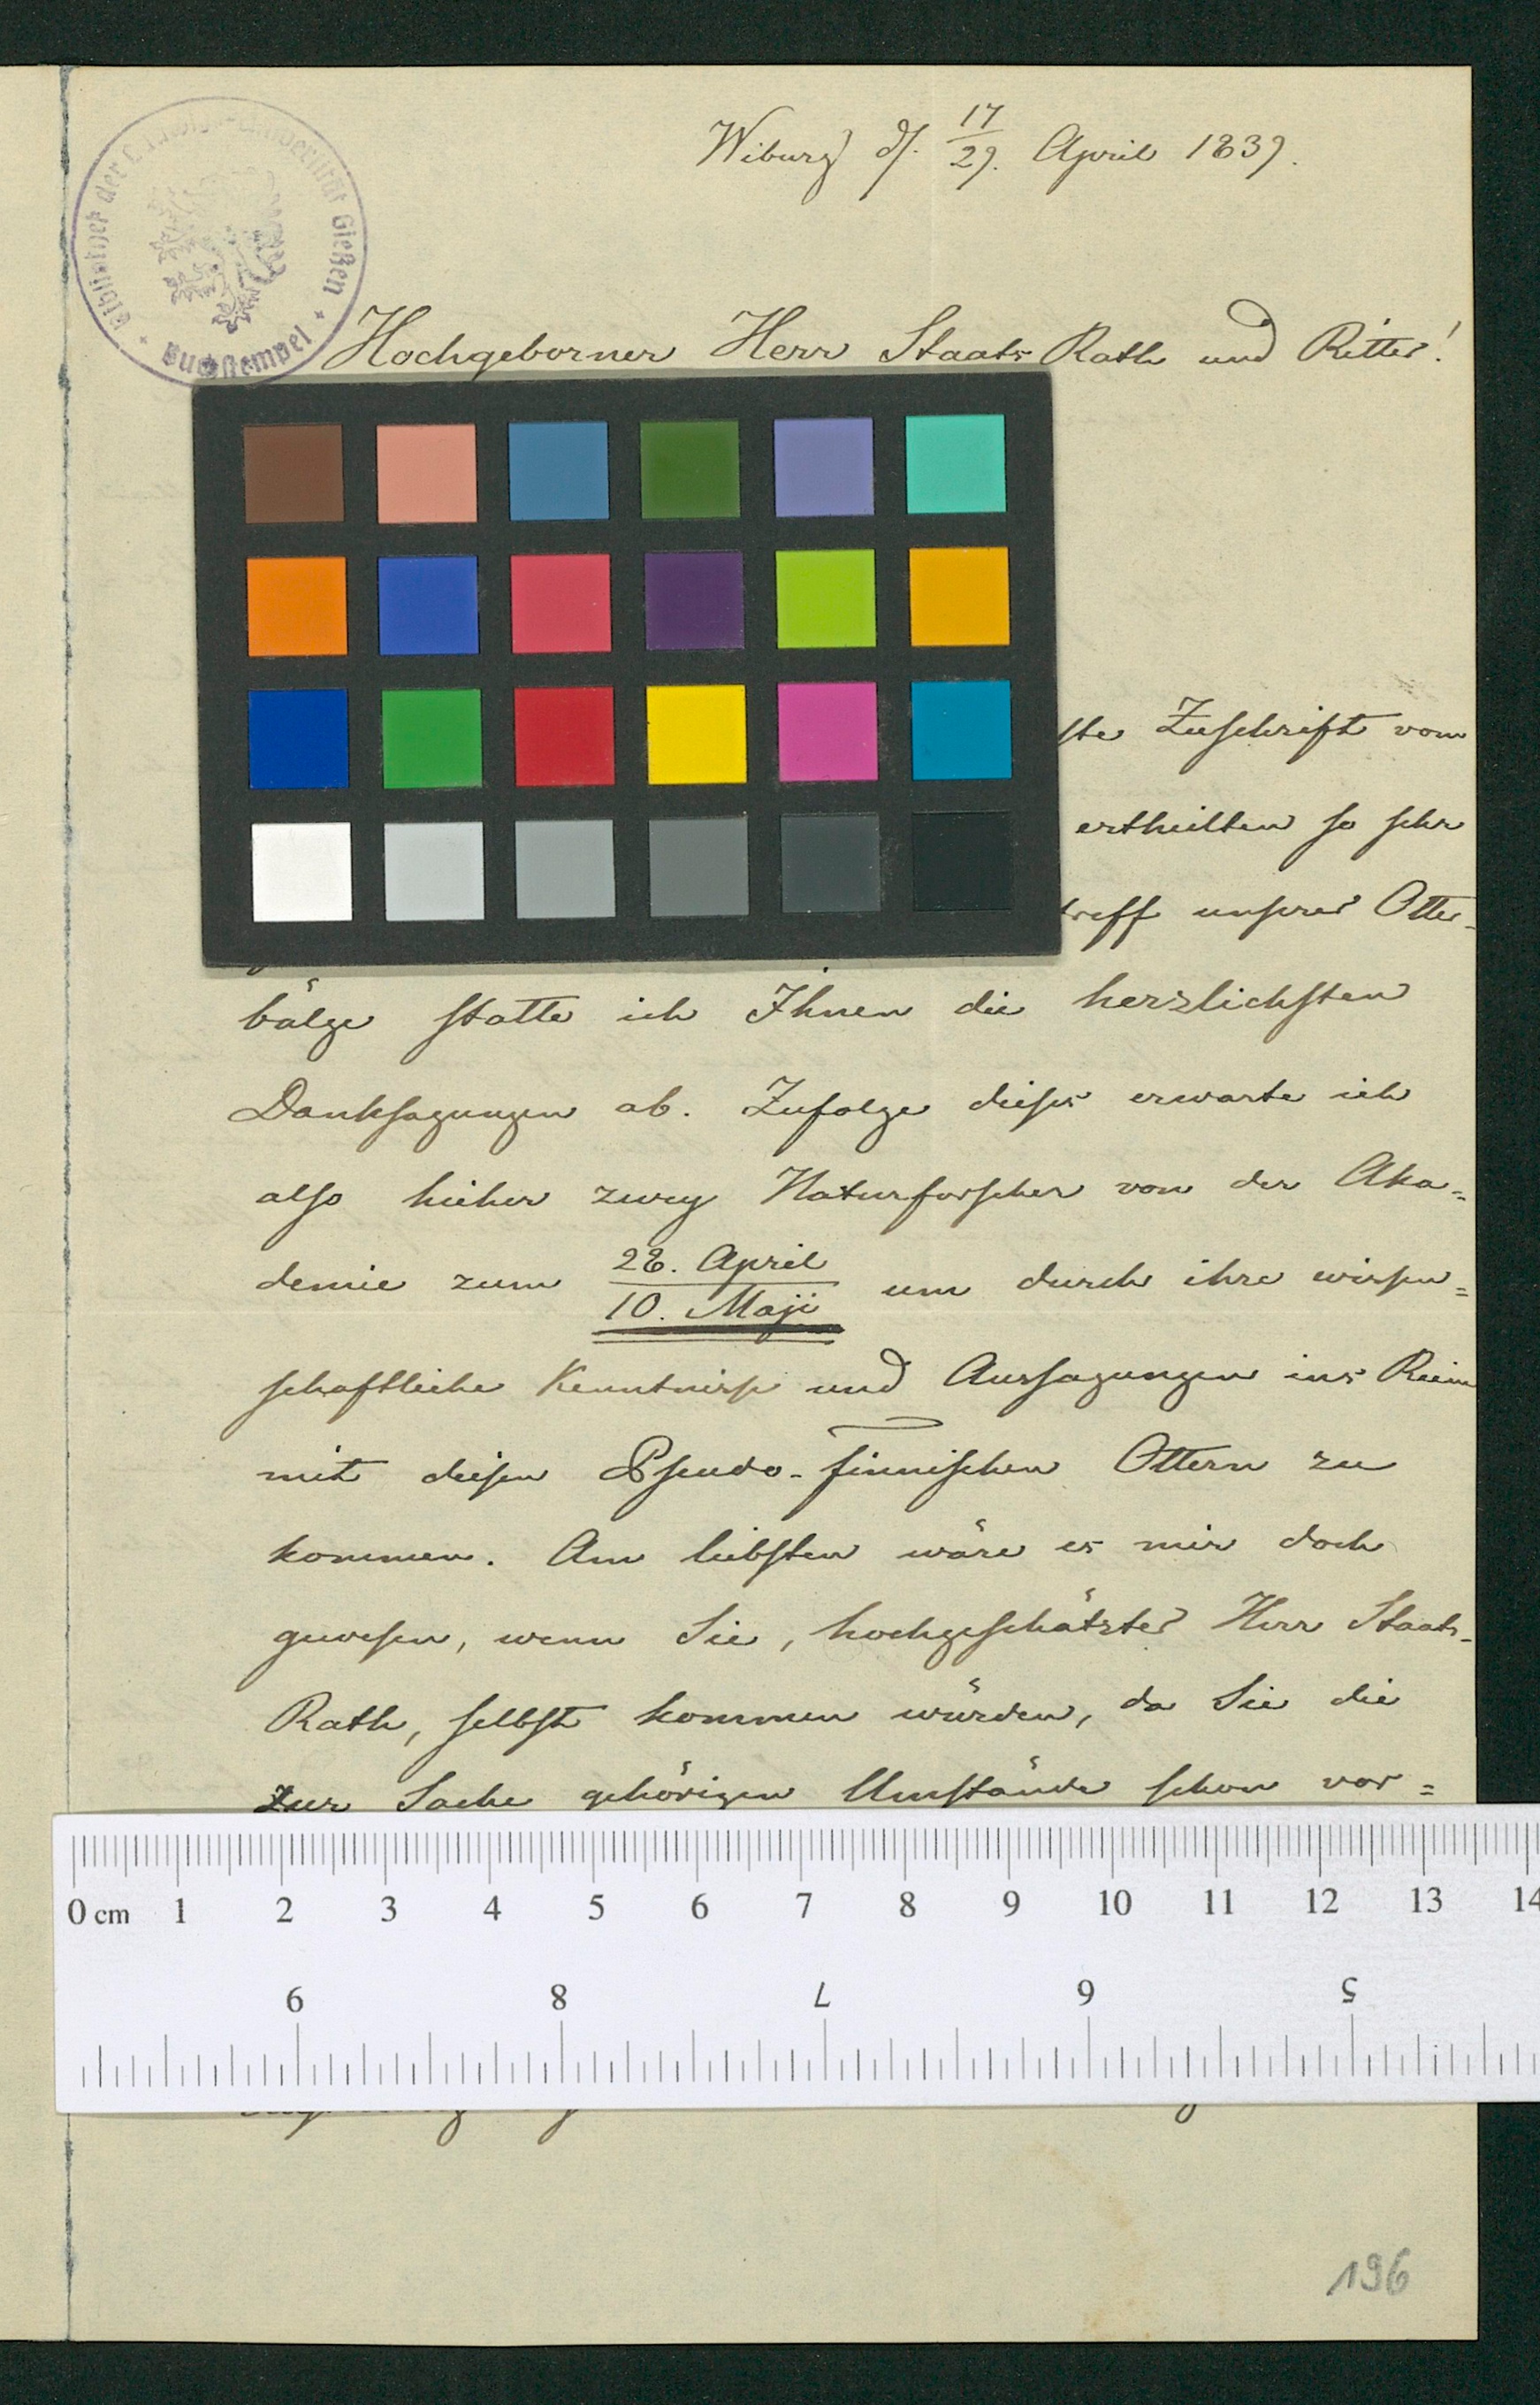 Wiburg d. 17/29. April 1839.
Bibliothek der L. Ludwigs-Universität Gießen
Buchstempel
Hochgeborner Herr Staats Rath und Ritter!
ste Zuschrift vom
ertheilten so sehr
treff unsrer Otter-
bälge statte ich Ihnen die herzlichsten
Danksagungen ab. Zufolge dieses erwarte ich
also hieher zwey Naturforscher von der Aka=
demie zum 28. April / 10. Maji um durch ihre wissen=
schaftliche Kenntnisse und Aussagungen ins Reine
mit diesen Pseudo-finnischen Ottern zu
kommen. Am liebsten wäre es mir doch
gewesen, wenn Sie, hochgeschätzter Herr Staats-
Rath, selbst kommen würden, da Sie die
zur Sache gehörigen Umstände schon vor=
0 cm 1 2 3 4 5 6 7 8 9 10 11 12 13 14
9 8 7 6 5
196